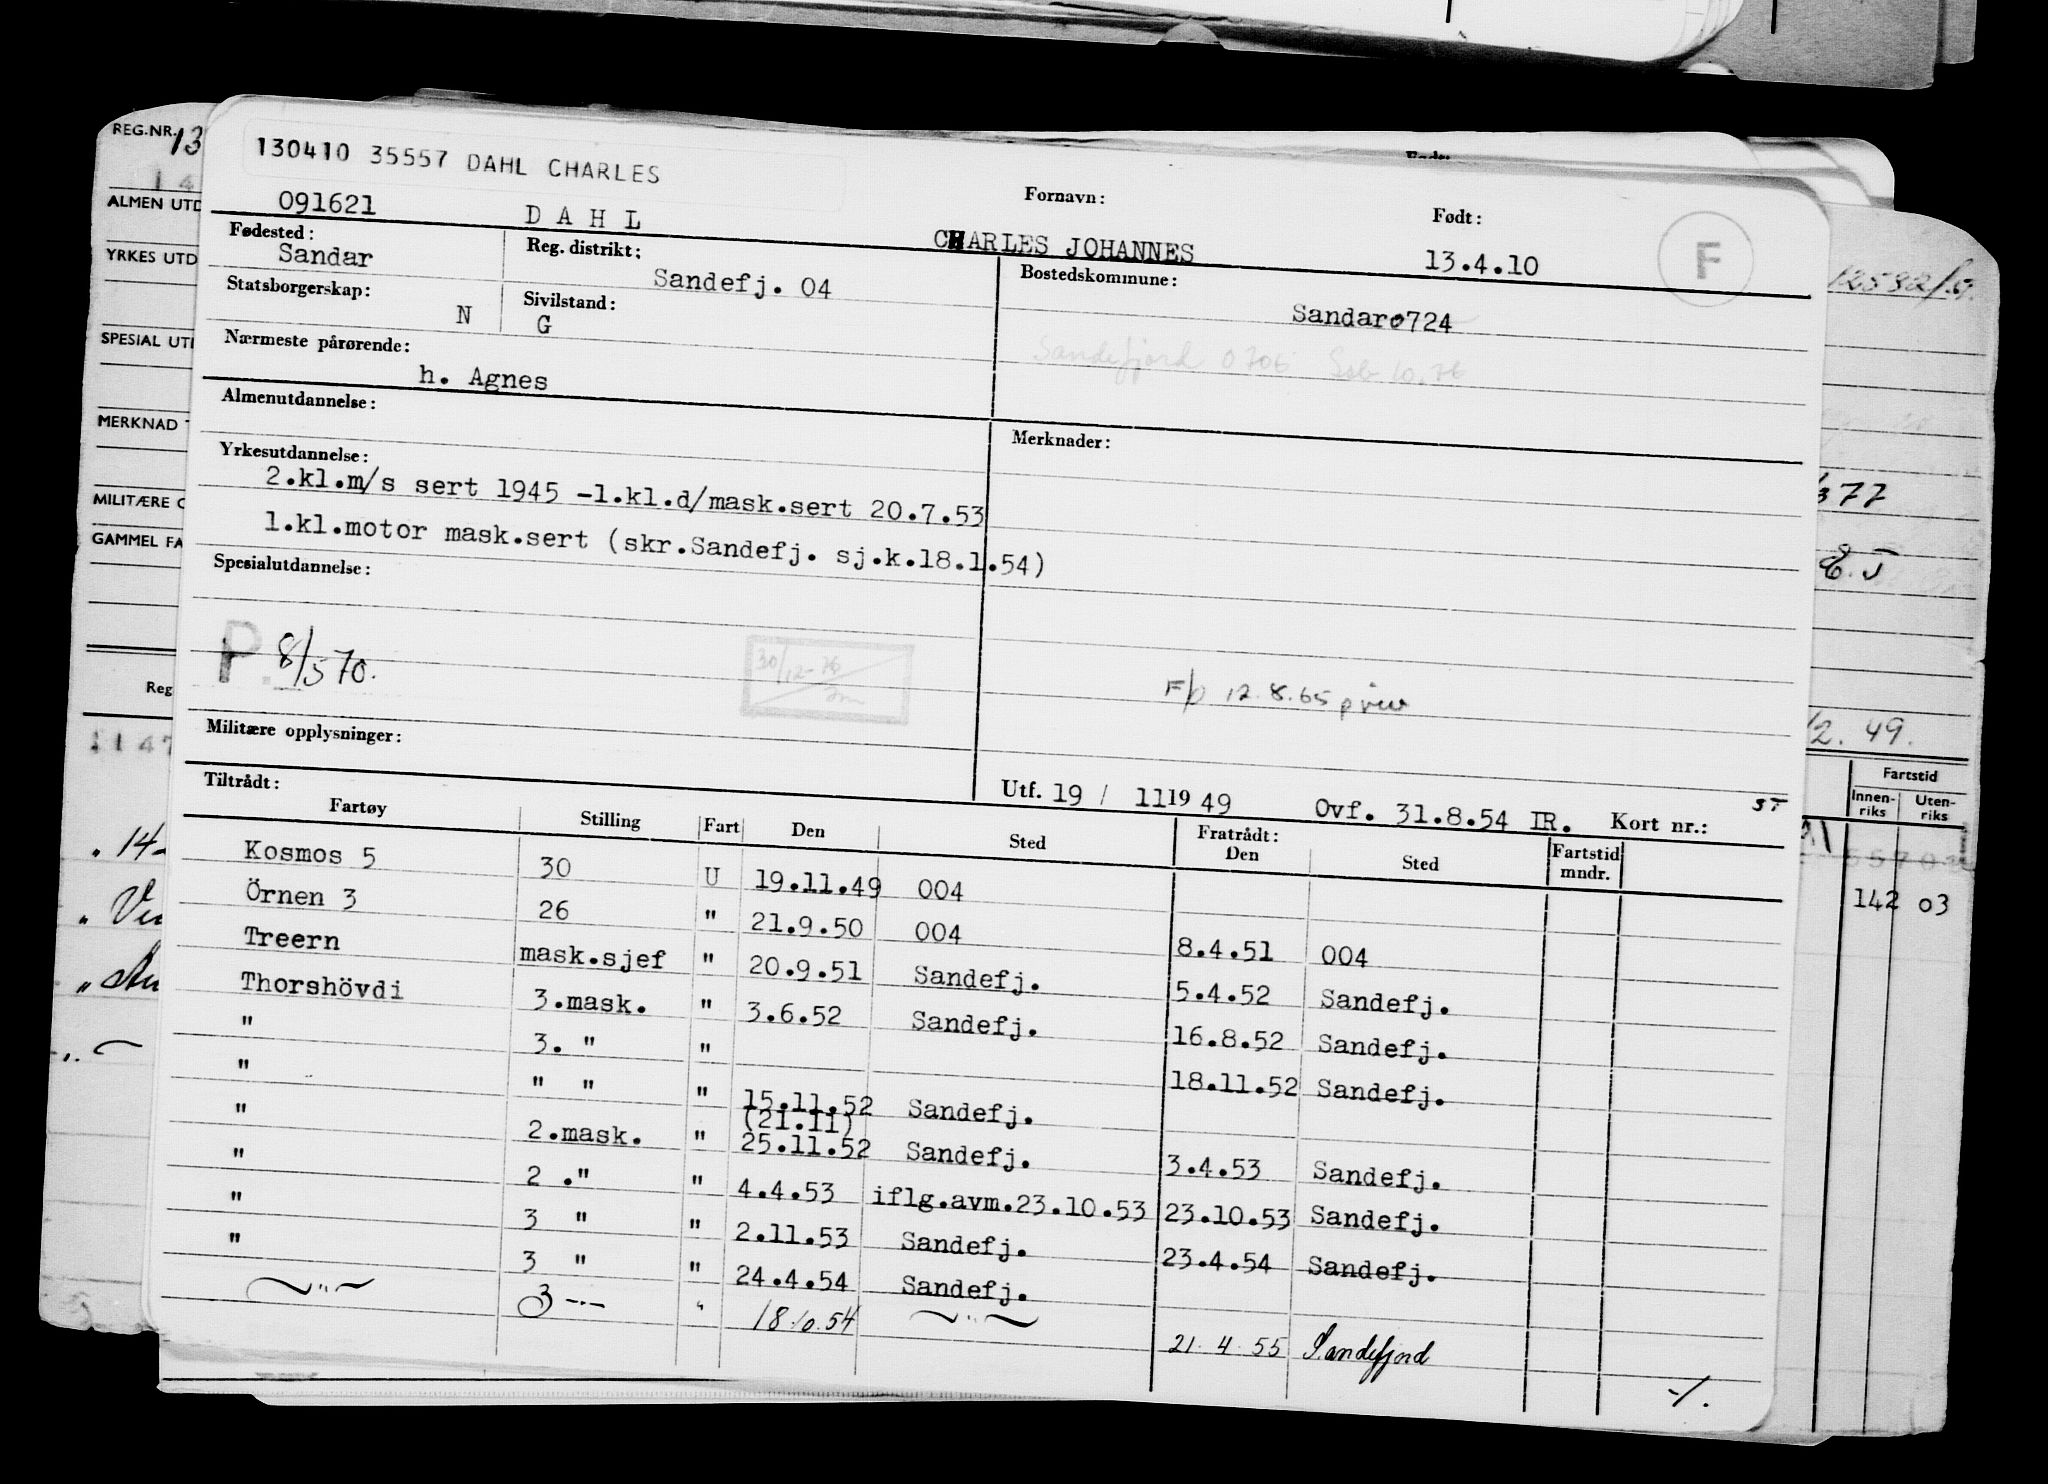 REG.NR. 13
ALMEN UTD
YRKES UTD
SPESIAL UT
MERKNAD
MILITÆRE
GAMMEL FA
Reg
130410 35557 DAHL CHARLES
091621 DAHL Fornavn: CHARLES JOHANNES Født: 13.4.10 F
Fødested: Sandar Reg. distrikt: Sandefj. 04 Bostedskommune: Sandar 0724
Statsborgerskap: N Sivilstand: G
Sandefjord 0706
Nærmeste pårørende: h. Agnes
Almenutdannelse: Merknader:
Yrkesutdannelse:
2.kl.m/s sert 1945 -1.kl.d/mask.sert 20.7.53
1.kl.motor mask.sert (skr.Sandefj. sj.k.18.1.54)
Spesialutdannelse:
P. 8/5 70.
30/12-76
F/p 12.8.65
Militære opplysninger:
Utf. 19 / 11 19 49 Ovf. 31.8.54 IR. Kort nr.:
Tiltrådt: Fratrådt:
Fartøy Stilling Fart Den Sted Den Sted Fartstid mndr.
Kosmos 5 30 U 19.11.49 004
Örnen 3 26 " 21.9.50 004 8.4.51 004
Treern mask.sjef " 20.9.51 Sandefj. 5.4.52 Sandefj.
Thorshövdi 3.mask. " 3.6.52 Sandefj. 16.8.52 Sandefj.
" 3. " " 18.11.52 Sandefj.
" " " " 15.11.52 Sandefj.
(21.11)
" 2.mask. " 25.11.52 Sandefj. 3.4.53 Sandefj.
" 2 ." " 4.4.53 iflg.avm.23.10.53 23.10.53 Sandefj.
" 3 " " 2.11.53 Sandefj. 23.4.54 Sandefj.
" 3 " " 24.4.54 Sandefj.
" 3 " " 18.10.54 " 21.4.55 Sandefjord
-/.
377
E.J
/2. 49.
Fartstid
Innenriks Utenriks
142 03